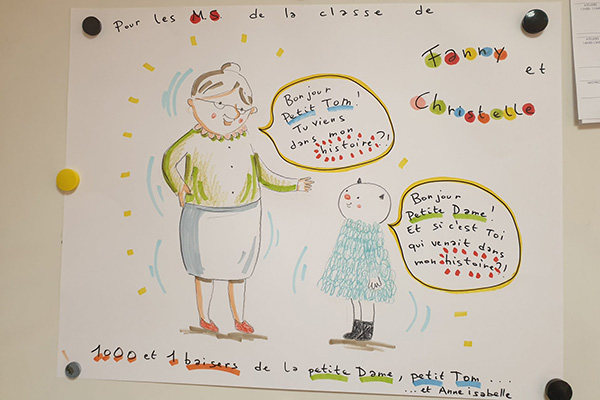 Pour les MS de la classe de
Fanny et
Christelle
Bonjour
Petit Tom!
Tu viens
dans mon
histoire?!
Bonjour
Petite Dame!
Et si c'est Toi
qui venait dans
mon histoire?!
1000 et 1 baisers de la petite Dame, petit Tom...
...et Anne isabelle